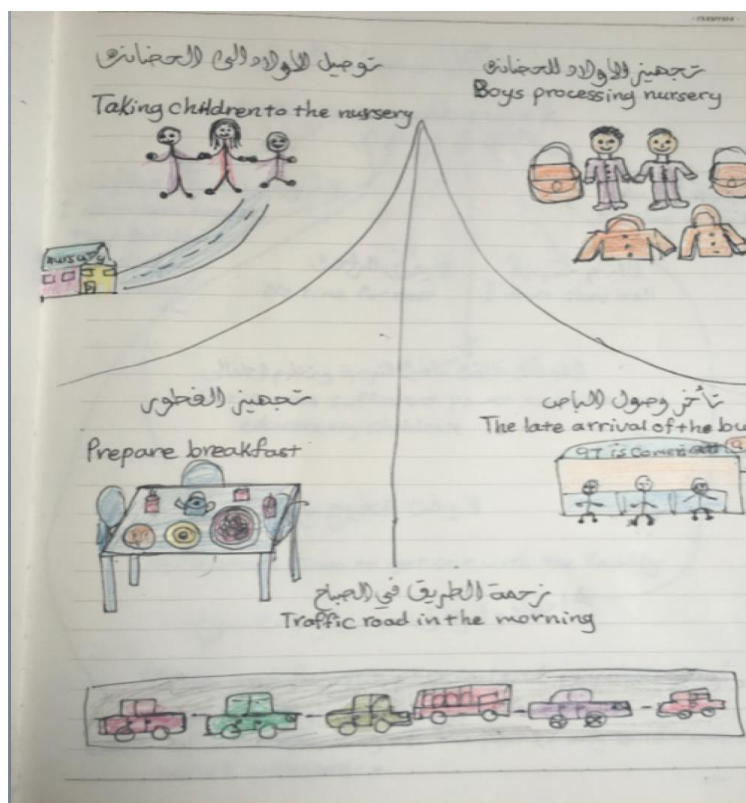 توصيل الأولاد الى الحضانة
Taking children to the nursery
تجهيز الأولاد للحضانة
Boys processing nursery
nursary
تجهيز الفطور
Prepare breakfast
تأخر وصول الباص
The late arrival of the bu
97 is
زحمة الطريق في الصباح
Traffic road in the morning